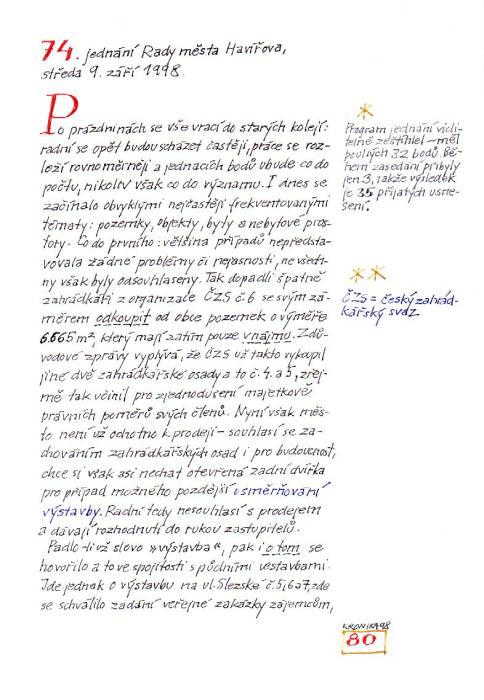 74. jednání Rady města Havířova,
středa 9. září 1998.
Po prázdninách se vše vrací do starých kolejí:
radní se opět budou scházet častěji, práce se roz-
loží rovnoměrněji a jednacích bodů ubude co do
počtu, nikoliv však co do významu. I dnes se
začínalo obvyklými nejčastěji frekventovanými
tématy: pozemky, objekty, byty a nebytové pros-
tory. Co do prvního: většina případů nepředsta-
vovala žádné problémy či nejasnosti, ne všech-
ny však byly odsouhlaseny. Tak dopadli špatně
zahrádkáři z organizace ČZS č. 6 se svým zá-
měrem odkoupit od obce pozemek o výměře
6.665 m², který mají zatím pouze v nájmu. Z dů-
vodové zprávy vyplývá, že ČZS už takto vykoupil
jiné dvě zahrádkářské osady a to č. 4 a 5, zřej-
mě tak učinil pro zjednodušení majetkově
právních poměrů svých členů. Nyní však měs-
to není už ochotno k prodeji – souhlasí se za-
chováním zahrádkářských osad i pro budoucnost,
chce si však asi nechat otevřená zadní dvířka
pro případ možného pozdější usměrňování
výstavby. Radní tedy nesouhlasí s prodejem
a dávají rozhodnutí do rukou zastupitelů.
Padlo-li už slovo »výstavba“, pak i o tom se
hovořilo a to ve spojitosti s půdními vestavbami.
Jde jednak o výstavbu na ul. Slezské č. 5, 6 a 7, zde
se schválilo zadání veřejné zakázky zájemcům,
*
Program jednání vidi-
telně zeštíhlel – měl
pouhých 32 bodů. Bě-
hem zasedání přibyly
jen 3, takže výsledek
je 35 přijatých usne-
sení.
**
ČZS = český zahrád-
kářský svaz
KRONIKA 98
80